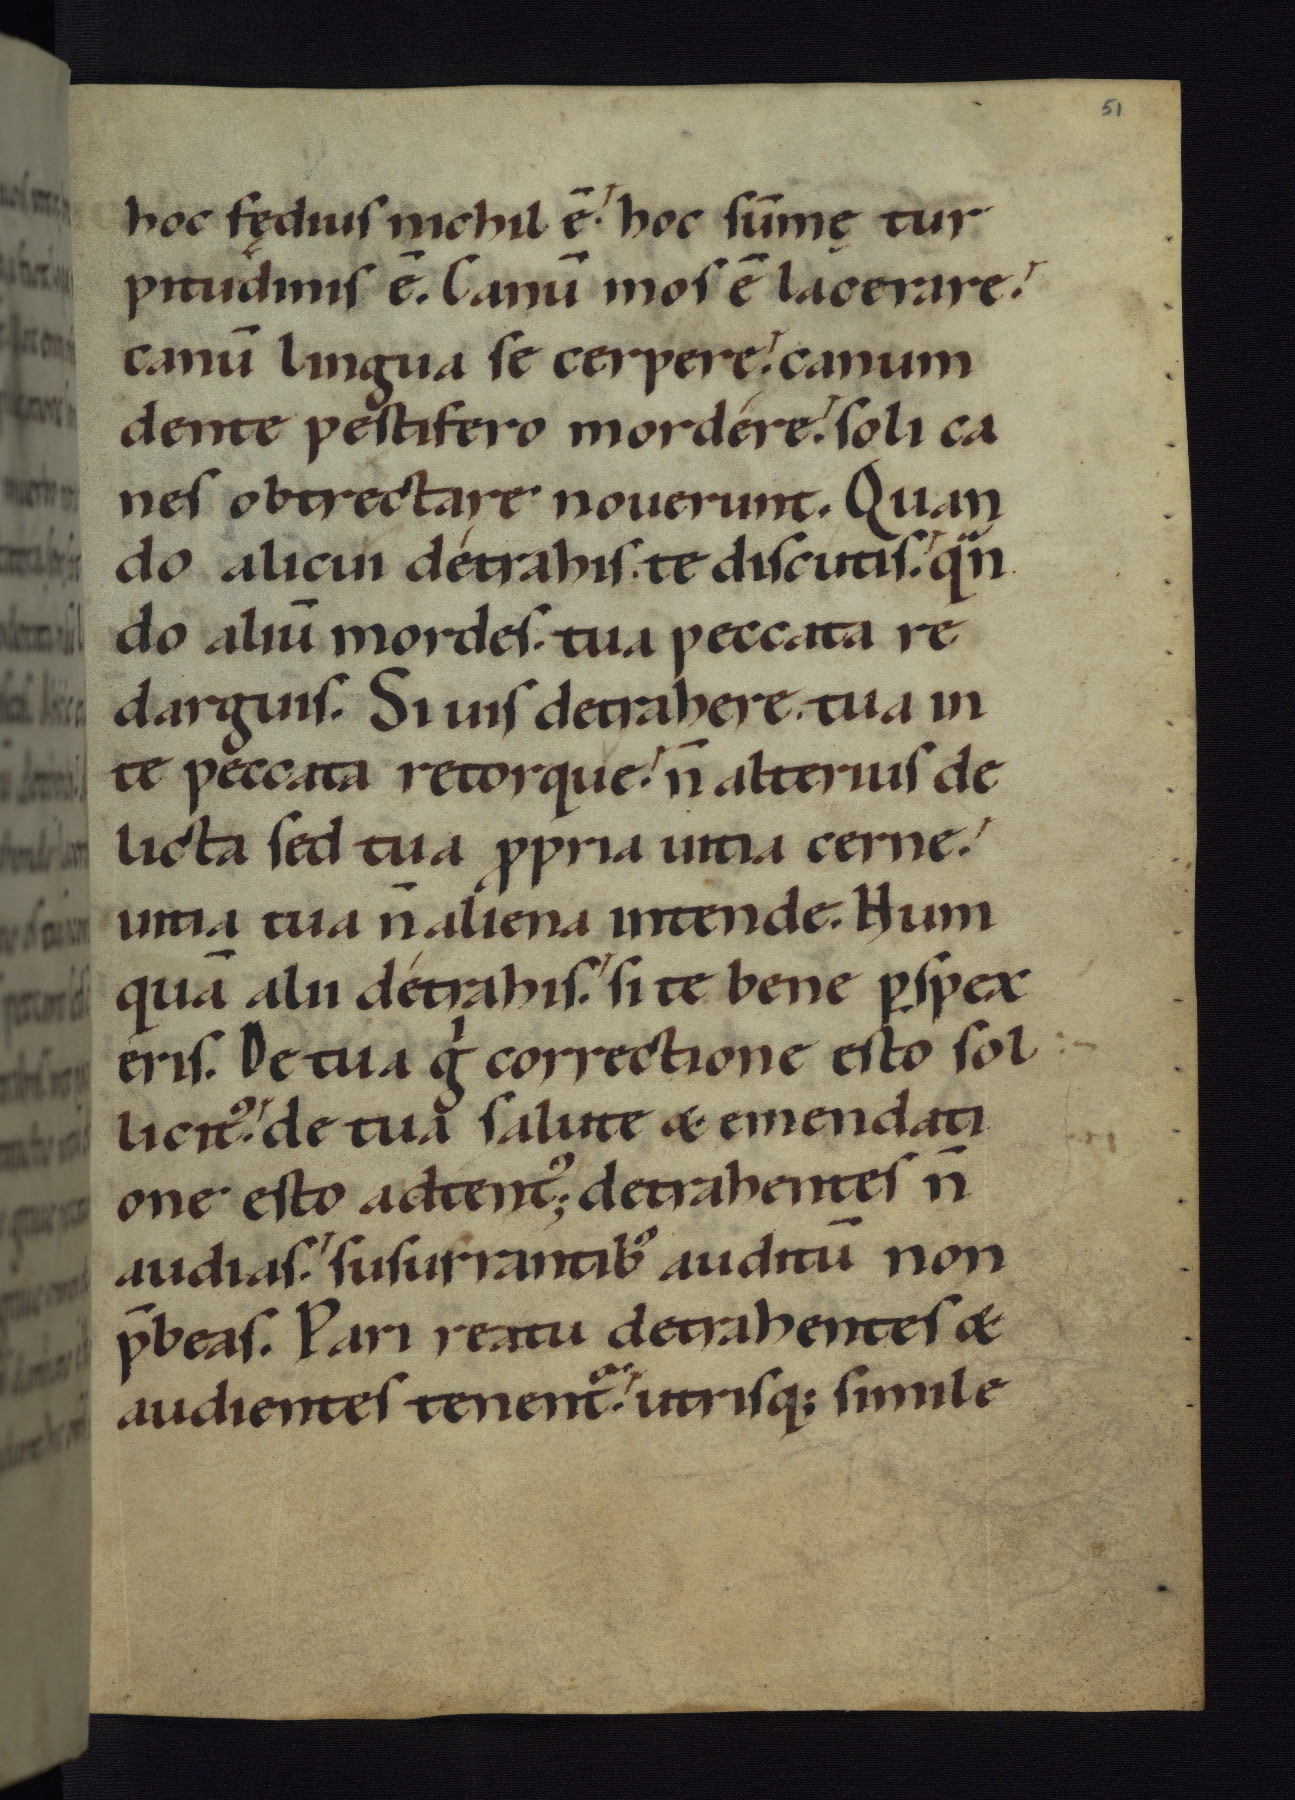 51
hoc fędius nichil ē. hoc sūmę tur
pitudinis ē. Canū mos ē lacerare.
canū lingua se cerpere. canum
dente pestifero mordére. soli ca
nes obtrectare nouerunt. Quan
do alicui détrahis. te discutis. qn̄
do aliū mordes. tua peccata re
darguis. Si uis detrahere. tua in
te peccata retorque. n̄ alterius de
licta sed tua ꝓpria uitia cerne.
uitia tua n̄ aliena intende. Num
quā alii détrahis. si te bene ꝑspex
eris. De tua gͥ correctione esto sol
licitꝰ. de tua salute & emendati
one esto adtentꝰ; detrahentes n̄
audias. susurrantibꝰ auditū non
p̄beas. Pari reatu detrahentes &
audientes tenent᷑. utrisq; simile